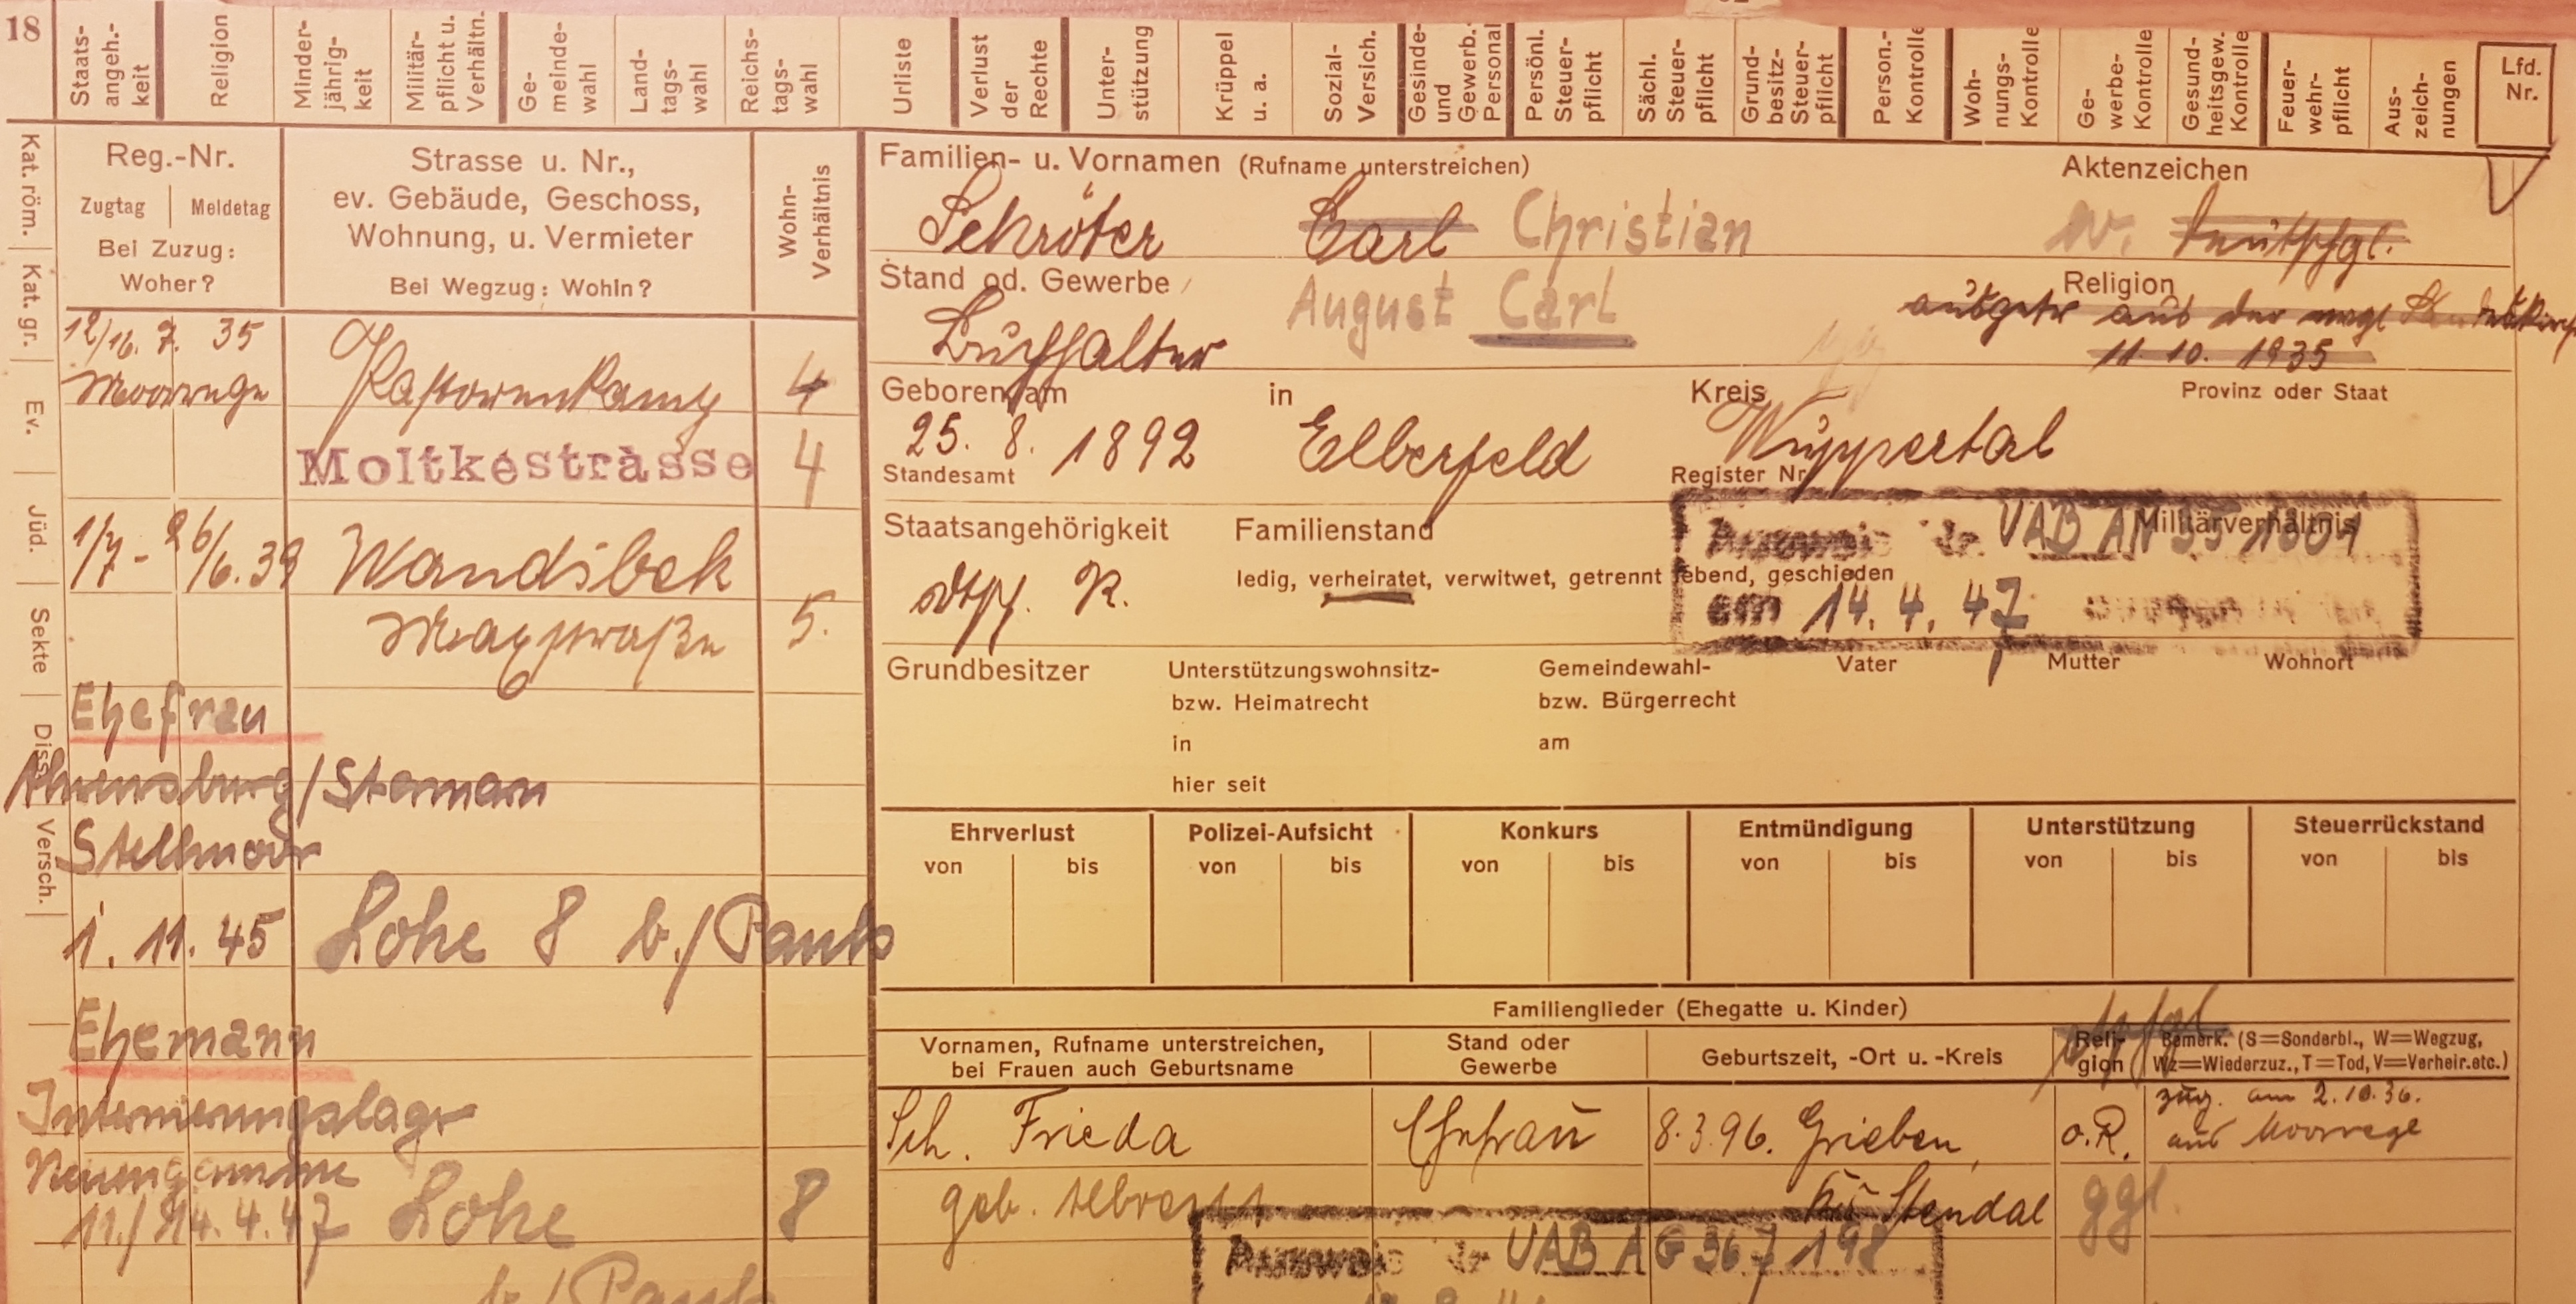 18
Staats-
angeh.-
keit
Religion
Minder-
jährig-
keit
Militär-
pflicht u.
Verhältn.
Ge-
meinde-
wahl
Land-
tags-
wahl
Reichs-
tags-
wahl
Urliste
Verlust
der
Rechte
Unter-
stützung
Krüppel
u. a.
Sozial-
Versich.
Gesinde-
und
Gewerb.
Personal
Persönl.
Steuer-
pflicht
Sächl.
Steuer-
pflicht
Grund-
besitz-
Steuer-
pflicht
Person.-
Kontrolle
Woh-
nungs-
Kontrolle
Ge-
werbe-
Kontrolle
Gesund-
heitsgew.
Kontrolle
Feuer-
wehr-
pflicht
Aus-
zeich-
nungen
Lfd.
Nr.
Kat. röm.
Kat. gr.
Ev.
Jüd.
Sekte
Diss.
Versch.
Reg.-Nr.
Zugtag Meldetag
Bei Zuzug:
Woher?
Strasse u. Nr.,
ev. Gebäude, Geschoss,
Wohnung, u. Vermieter
Bei Wegzug: Wohin?
Wohn-
Verhältnis
12/16. 7. 35
Moorrege Pastorenkamp 4
Moltkestrasse 4
1/7 - 26/6. 39 Wandsbek
5.
Ehefrau
Ahrensburg/Stormarn
Stellmoor
1. 11. 45 Lohe 8 b./Pauls
Ehemann
Internierungslager
Neuengamme
11./14. 4. 47 Lohe 8
b/Pauls
Familien- u. Vornamen (Rufname unterstreichen)
Aktenzeichen
Schröter Carl Christian
Stand od. Gewerbe
August Carl
Religion
Buchhalter
ausgetr aus der evgl Landeskirche
11. 10. 1935
Geboren am in Kreis Provinz oder Staat
25. 8. 1892 Elberfeld Wuppertal
Standesamt Register Nr.
Staatsangehörigkeit Familienstand Militärverhältnis
VAB AN 55 1804
ledig, verheiratet, verwitwet, getrennt lebend, geschieden
R.
am 14. 4. 47
Grundbesitzer
Unterstützungswohnsitz-
bzw. Heimatrecht
in
hier seit
Gemeindewahl-
bzw. Bürgerrecht
am
Vater Mutter Wohnort
Ehrverlust Polizei-Aufsicht Konkurs Entmündigung Unterstützung Steuerrückstand
von bis von bis von bis von bis von bis von bis
Familienglieder (Ehegatte u. Kinder)
Vornamen, Rufname unterstreichen,
bei Frauen auch Geburtsname
Stand oder
Gewerbe
Geburtszeit, -Ort u. -Kreis
Reli-
gion
Bemerk. (S=Sonderbl., W=Wegzug,
Wz=Wiederzuz., T=Tod, V=Verheir.etc.)
Sch. Frieda Ehefrau 8. 3. 96. Grieben, o.R.
zug. am 2.10.36.
aus Moorrege
geb. Albrecht Kr. Stendal ggl.
VAB AG 367 198